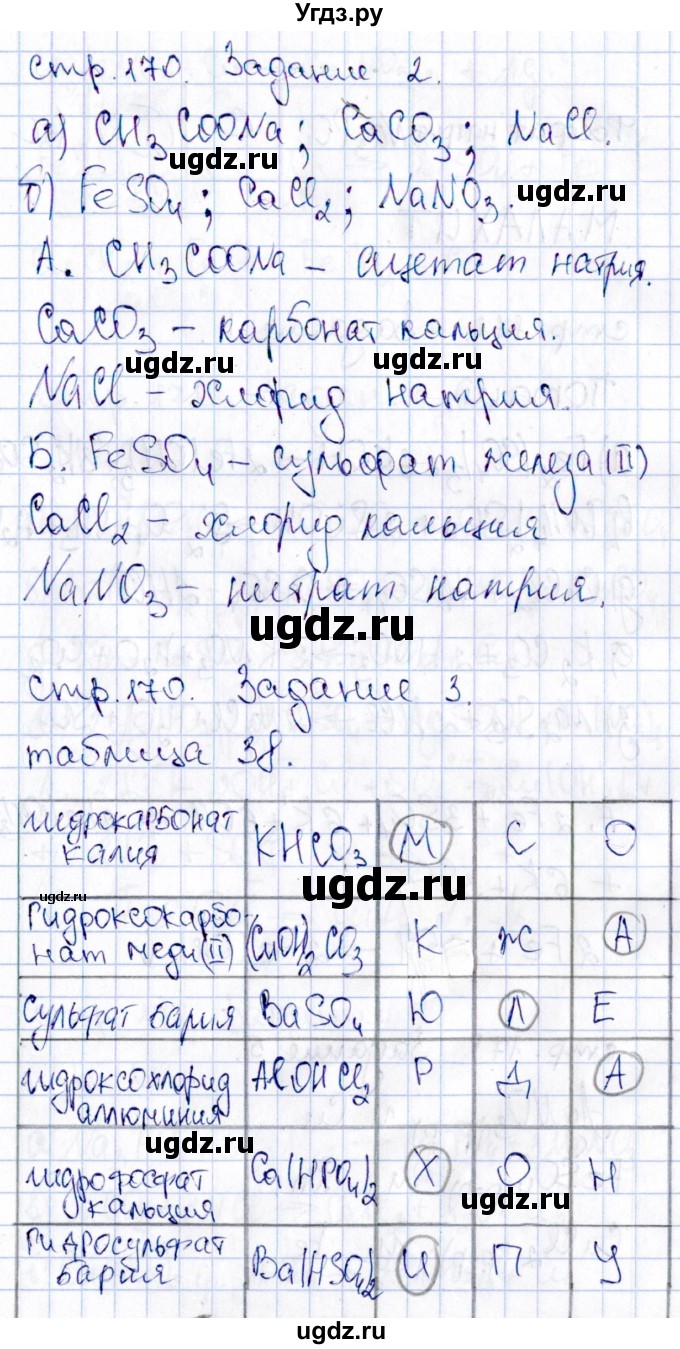 Угдз.ру
стр. 170. Задание 2.
а) CH₃COONa; CaCO₃; NaCl.
ugdz.ru
б) FeSO₄; CaCl₂; NaNO₃.
ugdz.ru
А. CH₃COONa – ацетат натрия.
CaCO₃ – карбонат кальция.
ugdz.ru ugdz.ru
NaCl – хлорид натрия.
Б. FeSO₄ – сульфат железа (II)
CaCl₂ – хлорид кальция
NaNO₃ – нитрат натрия.
ugdz.ru
стр. 170. Задание 3.
таблица 38.
гидрокарбонат калия KHCO₃ М С О
ugdz.ru ugdz.ru
Гидроксокарбонат меди (II) (CuOH)₂CO₃ К Ж А
Сульфат бария BaSO₄ Ю Л Е
гидроксохлорид аллюминия AlOHCl₂ Р Д А
ugdz.ru
гидрофосфат кальция Ca(HPO₄)₂ Х О Н
ugdz.ru
Гидросульфат бария Ba(HSO₄)₂ И П У
ugdz.ru